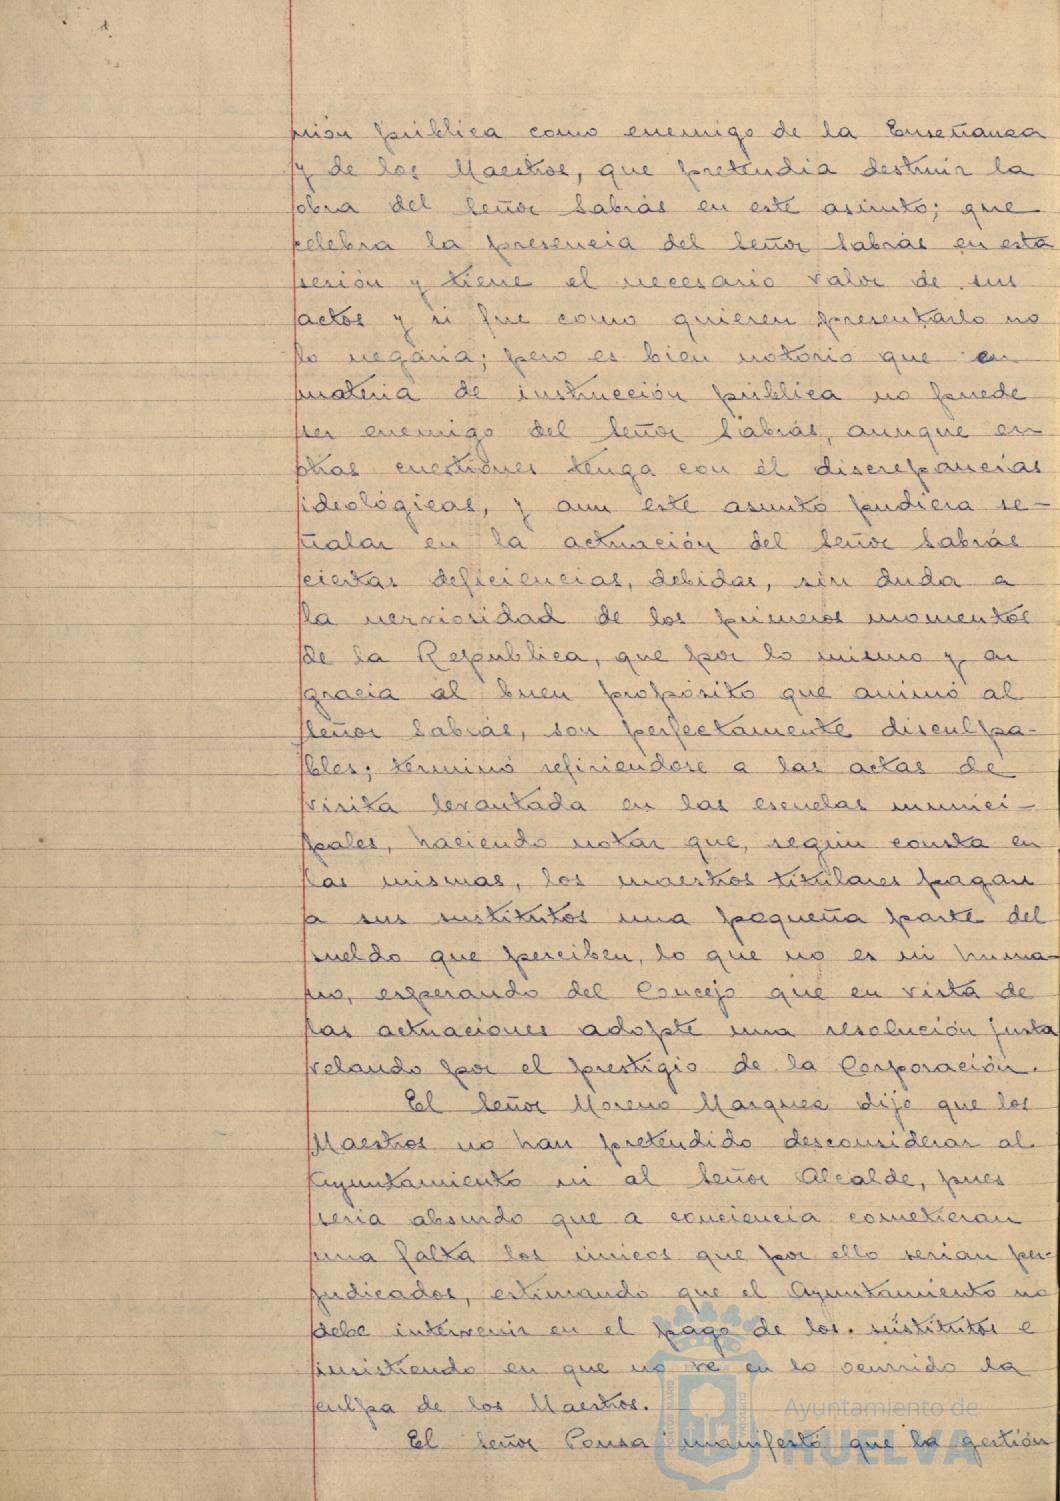 nión pública como enemigo de la Enseñanza
y de los Maestros, que pretendia destruir la
obra del Señor Sabrás en este asunto; que
celebra la presencia del Señor Sabrás en esta
sesión y tiene el necesario valor de sus
actos y si fue como quieren presentarlo no
lo negaria; pero es bien notorio que en
materia de instrucción pública no puede
ser enemigo del Señor Sabrás, aunque en
otras cuestiones tenga con él discrepancias
ideológicas, y aun este asunto pudiera se-
ñalar en la actuación del Señor Sabrás
ciertas deficiencias, debidas, sin duda a
la nerviosidad de los primeros momentos
de la República, que por lo mismo y en
gracia al buen propósito que animó al
Señor Sabrás, son perfectamente disculpa-
bles; terminó refiriendose a las actas de
visita levantada en las escuelas munici-
pales, haciendo notar que, según consta en
las mismas, los maestros titulares pagan
a sus sustitutos una pequeña parte del
sueldo que perciben, lo que no es ni huma-
no, esperando del Concejo que en vista de
las actuaciones adopte una resolución justa
velando por el prestigio de la Corporación.
El Señor Moreno Marquez dijo que los
Maestros no han pretendido desconsiderar al
Ayuntamiento ni al Señor Alcalde, pues
seria absurdo que a conciencia cometieran
una falta los únicos que por ello serian per-
judicados, estimando que el Ayuntamiento no
debe intervenir en el pago de los sustitutos e
insistiendo en que no ve en lo ocurrido la
culpa de los Maestros.
El Señor Ponsa manifestó que la gestión
Ayuntamiento de
HUELVA